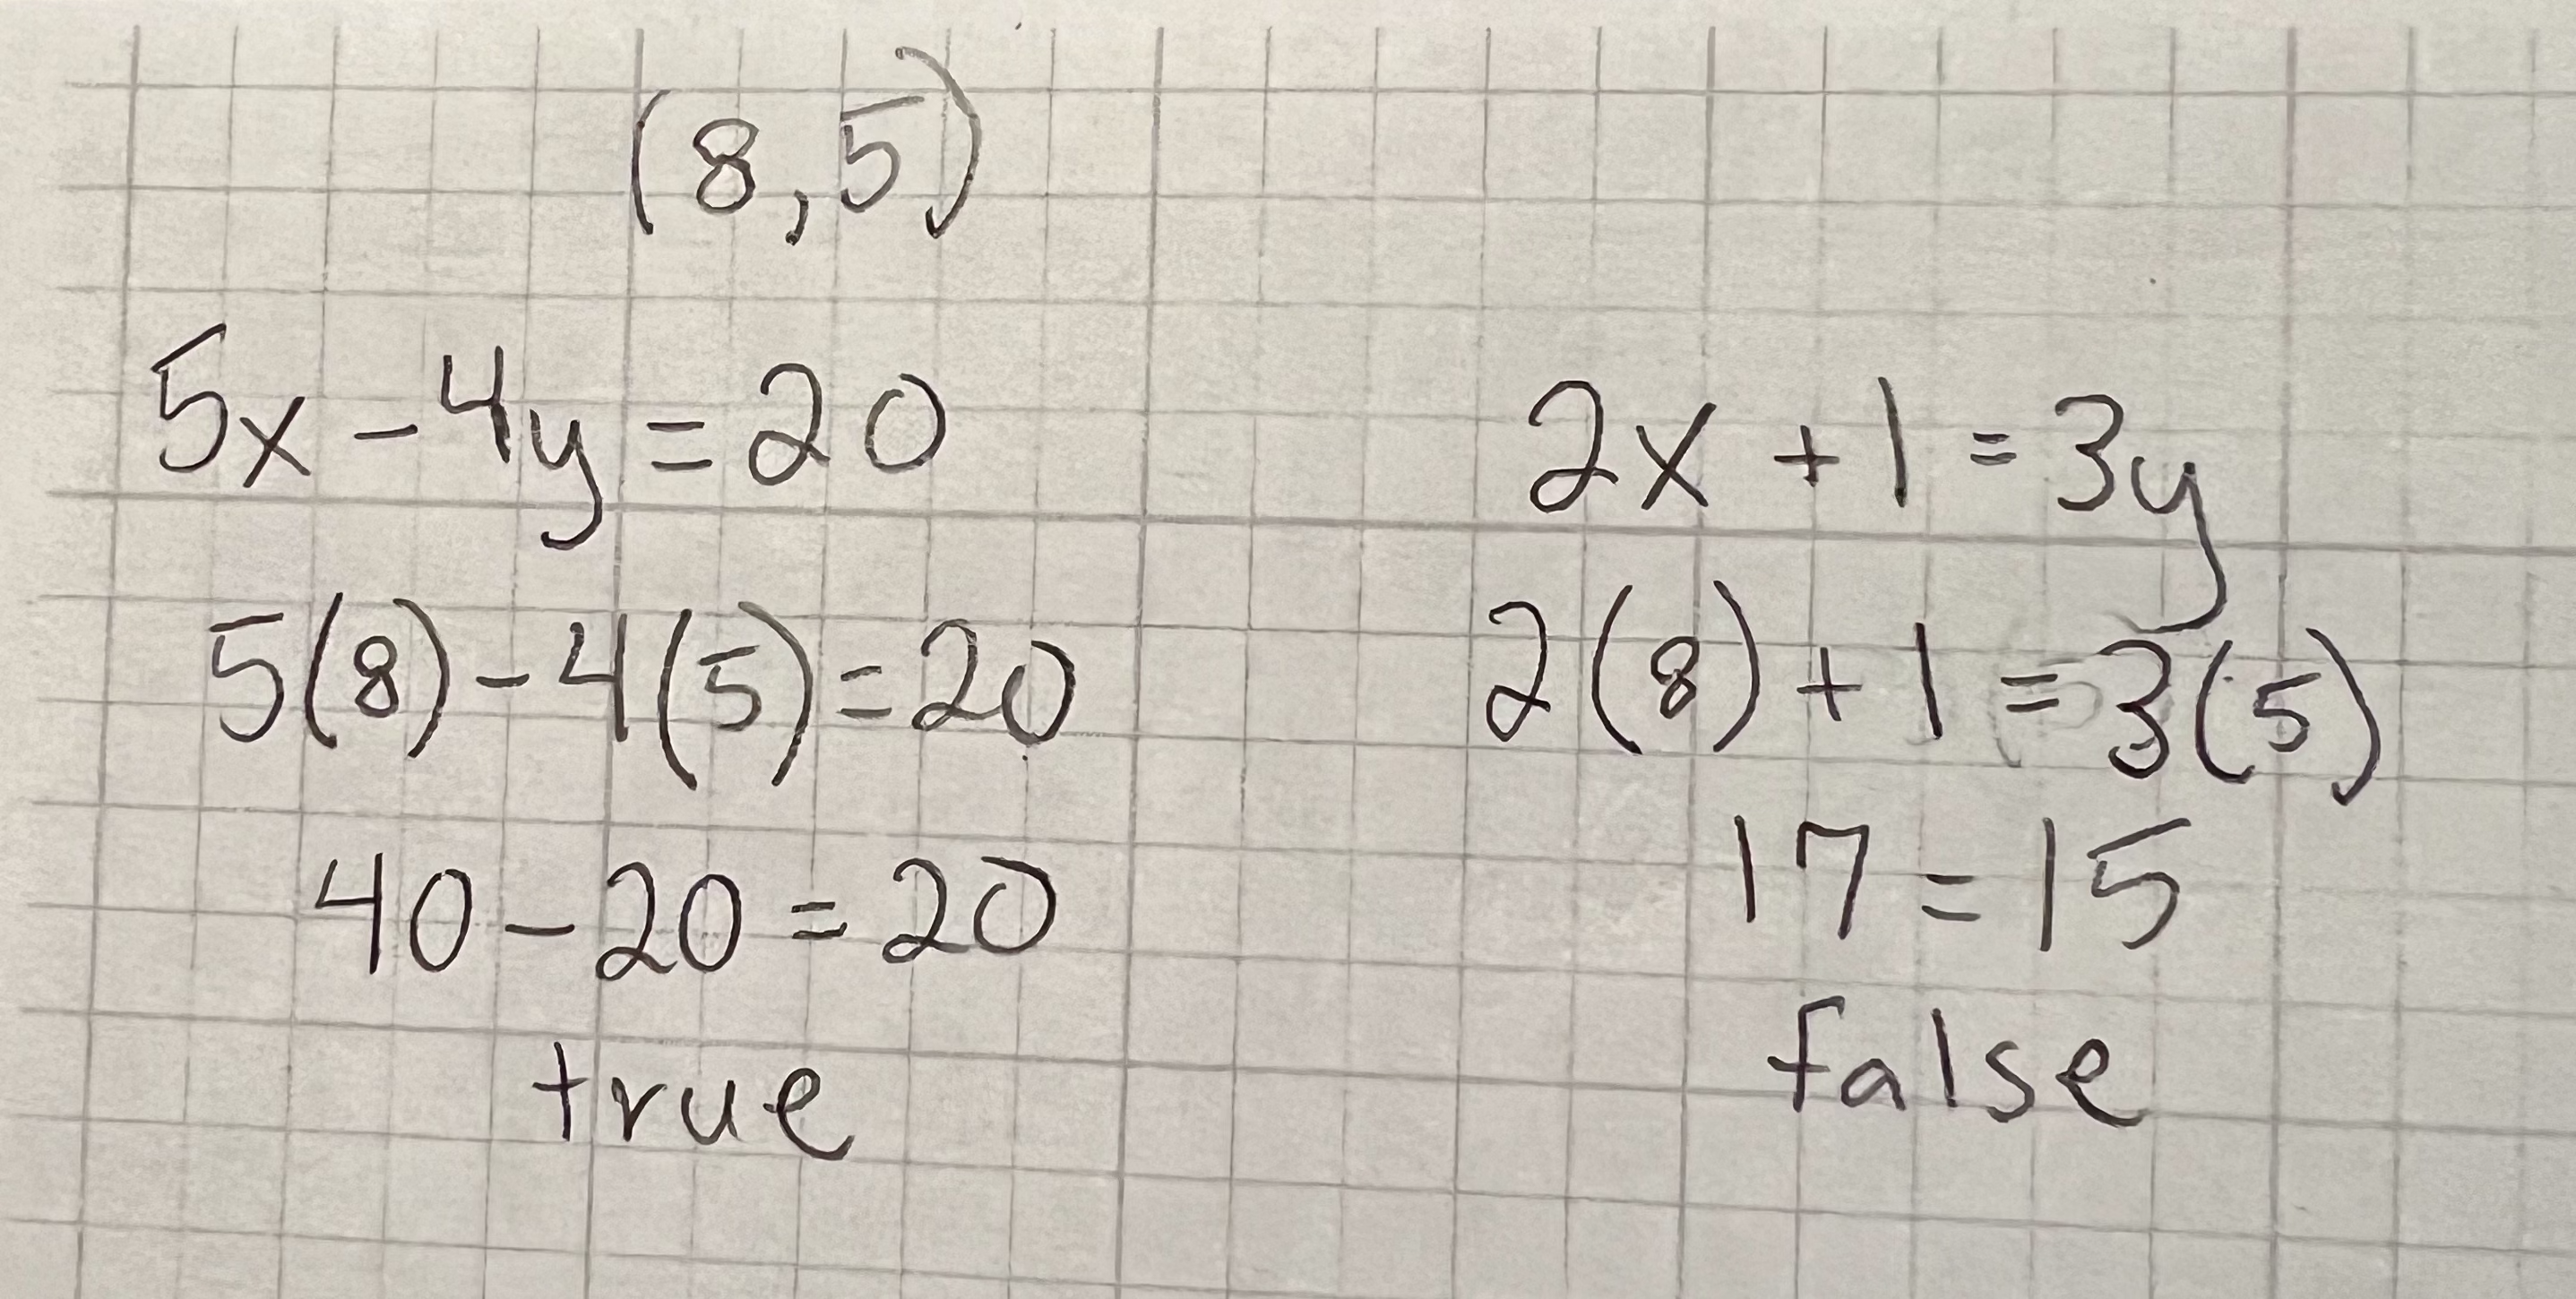 (8,5)
5x-4y=20
5(8)-4(5)=20
40-20=20
true
2x+1=3y
2(8)+1=3(5)
17=15
false